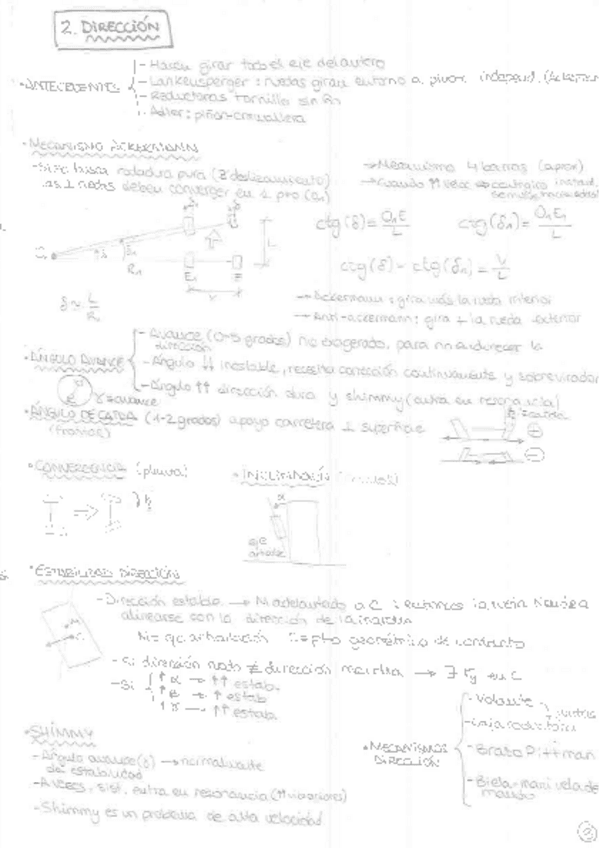 2. DIRECCIÓN
- Hacen girar todo el eje delantero
· ANTECEDENTES
- Lankensperger: ruedas giran entorno a pivor independ. (Ackerman
- Reductoras tornillo sin fin
- Adler: piñon-cremallera
· MECANISMO ACKERMANN
- Si se busca rodadura pura (∄ deslizamiento)
las ⊥ ruedas deben converger en 1 pto (O₁)
→ Mecanismo 4 barras (aprox)
→ Cuando ↑↑ veloc
ctg(δ) = O₁E / L
ctg(δ₁) = O₁E₁ / L
ctg(δ) - ctg(δ₁) = V / L
L
R₁
E₁ E
V
δ ≈ L / R₁
→ Ackermann: gira más la rueda interior
→ Anti-ackermann: gira + la rueda exterior
· ÁNGULO AVANCE
- Avance (0-5 grados) no exagerado, para no endurecer la
dirección
- Ángulo ↓↓ inestable, necesita corrección continuamente y sobrevirador
- Ángulo ↑↑ dirección dura y shimmy (entra en resonancia)
γ = avance
· ÁNGULO DE CAÍDA (1-2 grados) apoyo carretera ⊥ superficie
(frontal)
+
-
· CONVERGENCIA (planta)
· INCLINACIÓN
α
eje
pivote
· ESTABILIDAD DIRECCIÓN
- Dirección estable → N adelantado a C : entonces la rueda tiende a
alinearse con la dirección de la inercia
N = eje articulación C = pto geométrico de contacto
- Si dirección rueda ≠ dirección marcha → ∃ Fy en C
- Si
↑ α → ↑↑ estab.
↑ β → ↑ estab
↑ γ → ↑ estab.
· SHIMMY
- Ángulo avance (γ) → normalmente
da estabilidad
- A veces, sist. entra en resonancia (↑↑ vibraciones)
- Shimmy es un problema de alta velocidad
· MECANISMOS
DIRECCIÓN
- Volante
- Caja reductora
juntas
- Brazo Pittman
- Biela-manivela de
mando
3